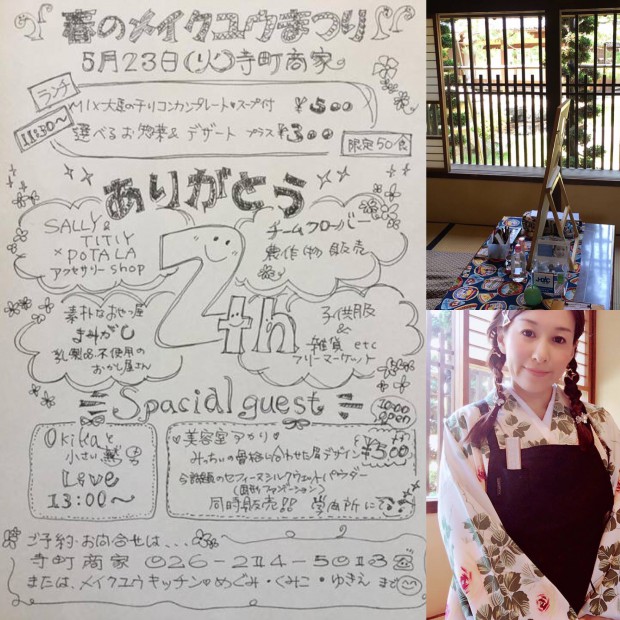 春のメイクユウまつり
5月23日(火)寺町商家
ランチ
11:30〜
MIX大豆のチリコンカンプレート♥スープ付 ¥500
選べるお惣菜& デザート プラス¥300
限定50食
ありがとう
2th
SALLY &
TITIY
×POTALA
アクセサリーshop
チームフローバー
農作物販売
素朴なおやつ屋
まみがし
乳製品・不使用の
おかし屋さん
子供服
&
雑貨 etc
フリーマーケット
Spacial guest
10:00
open
Okikaと
小さい
Live
13:00〜
美容室アカリ
みっちぃの骨格に合わせた眉デザイン ¥500
今話題のセフィーヌシルクウェットパウダー
(固形ファンデーション)
同時販売!!
ご予約・お問合せは、、、
寺町商家 026-214-5013
または、メイクユウキッチン♥めぐみ・くみこ・ゆきえ まで